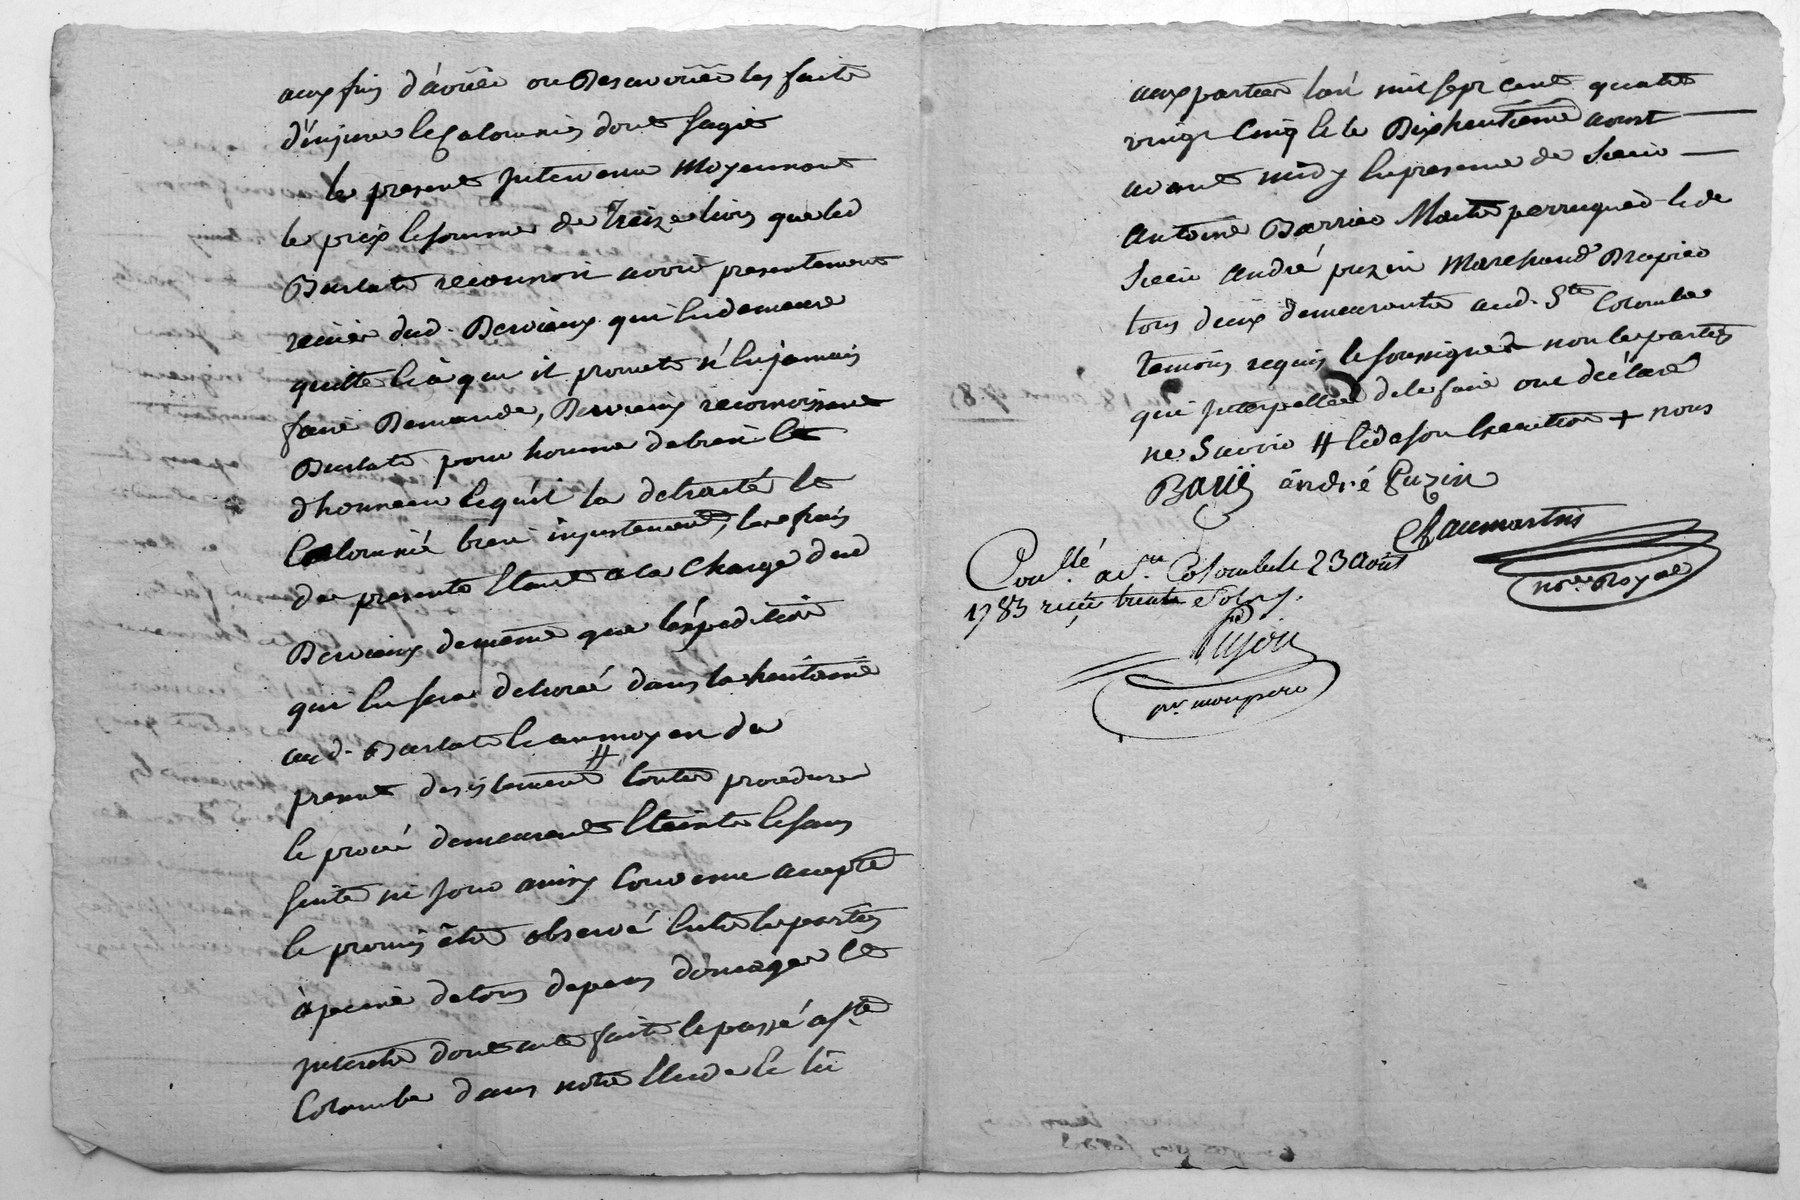 aux fins d'avoüer ou Desavoüer les faits
d'injure & Calomnies dont sagit
le present intervenu Moyennant
le prix & somme de Treize livres que led
Burlat reconnoit avoir presentement
reçüe dud. Dervieux qui en demeure
quitte & à qui il promet n'en jamais
faire Demande, Dervieux reconnoissant
Burlat pour homme de bien &
d'honneur & qu'il la detracté &
Calomnié bien injustement, les frais
des presentes etant a la Charge dud
Dervieux de meme que l'expedition
qui en sera delivrée dans la huitaine
aud. Burlat & au moyen du
present desistement # toutes procedures
& procès demeurent eteints & sans
suite ni jour ainsy Convenu accepté
& promis être observé entre les parties
à peine de tous depens domages &
interets dont acte fait & passé a Ste
Colombe dans notre Etude & lû
aux parties l'an mil sept cent quatre
vingt Cinq & le Dixhuitieme aoust
avant midy en presence de Sieur
Antoine Barrier Maitre perruquier & de
Sieur André puzin Marchand Drapier
tous deux demeurants aud. Ste Colombe
temoins requis & soussignés non les parties
qui interpellées de le faire ont déclaré
ne Savoir # & de son execution + nous
andré Puzin
Chaumartin
nore Royal
Conllé a ste Colombe le 23 Aout
1785 reçu trente sols